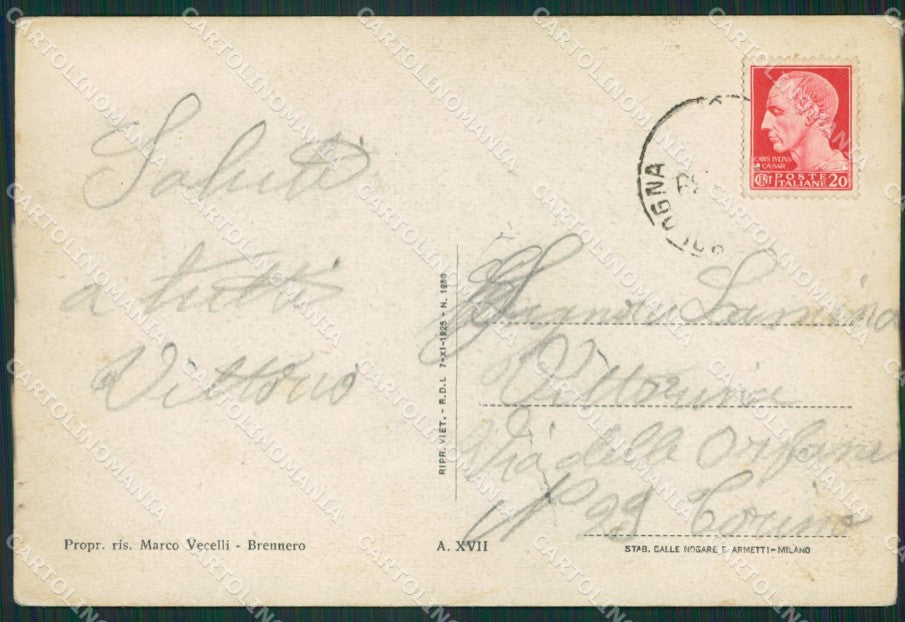 Saluti
a tutti
Vittorio
BOLOGNA
CAIUS JVLIUS
CAESAR
CENT POSTE ITALIANE 20
RIPR. VIET. - R.D.L. 7-XI-1925 - N. 1950
Vittorina
Via delle Orfane
N° 29 Torino
Propr. ris. Marco Vecelli - Brennero
A. XVII
STAB. DALLE NOGARE E ARMETTI - MILANO
CARTOLINOMANIA